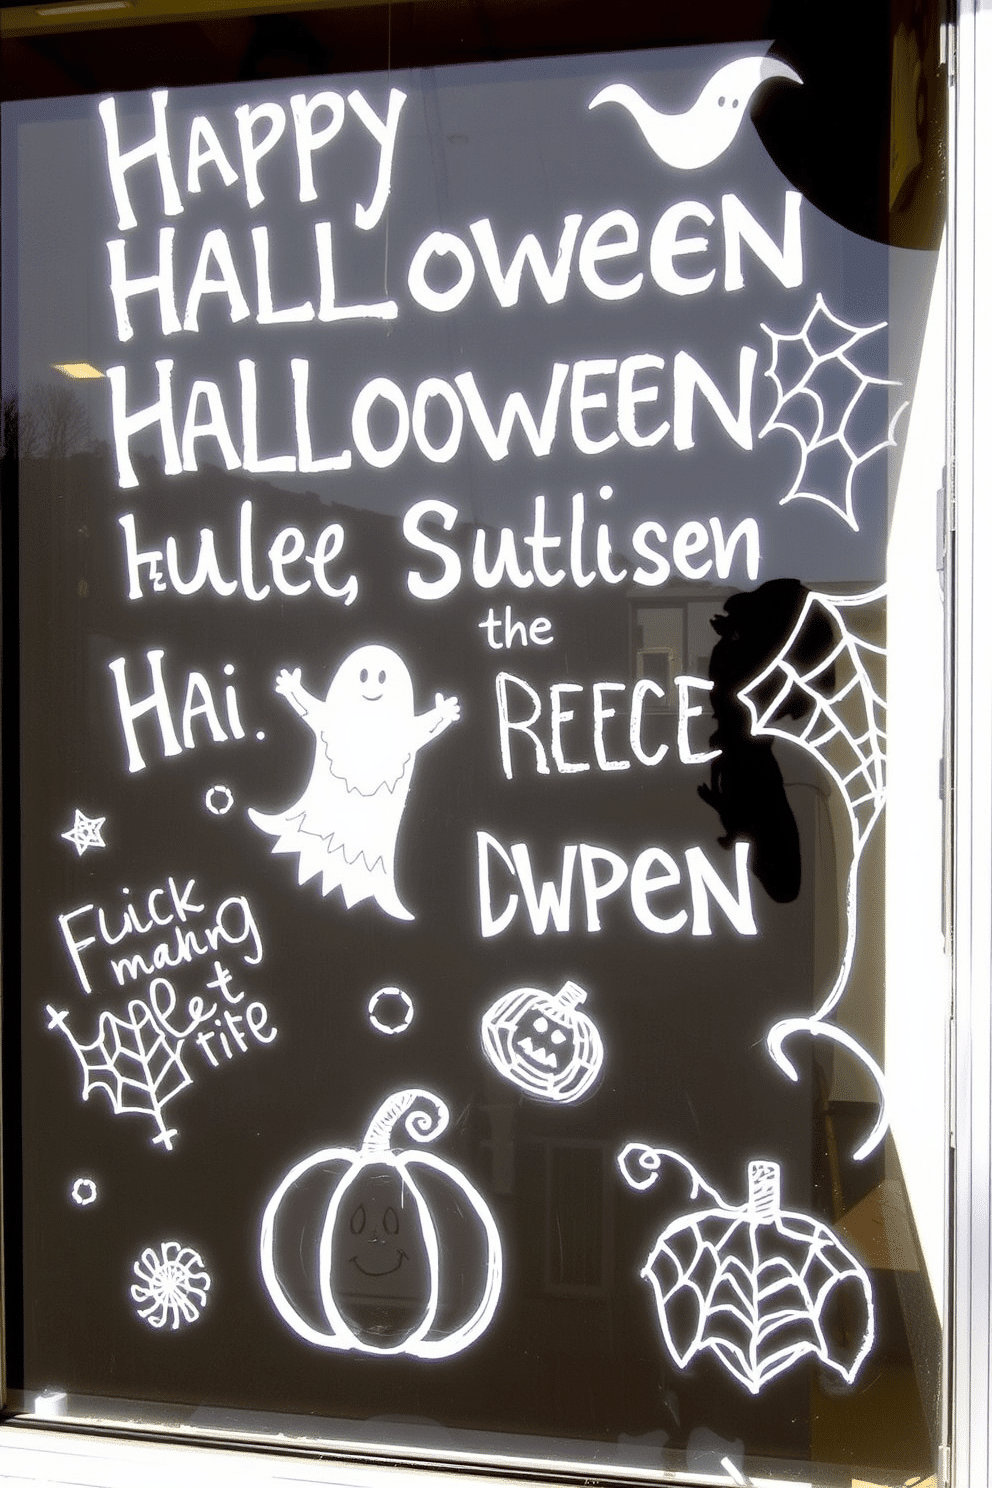 HAPPY
HALLOWEEN
HALLOOWEEN
Hulee, Sutlisen
the
HAi.
REECE
DWPEN
Fuick
mahng
let
tife